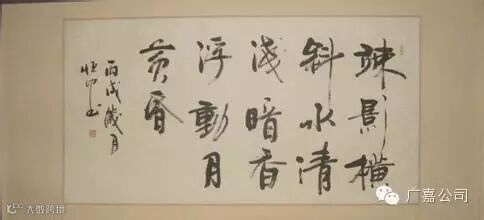 疎影橫
斜水清
浅暗香
浮動月
黄昏
丙戌歲月
书
大数跨境
广嘉公司